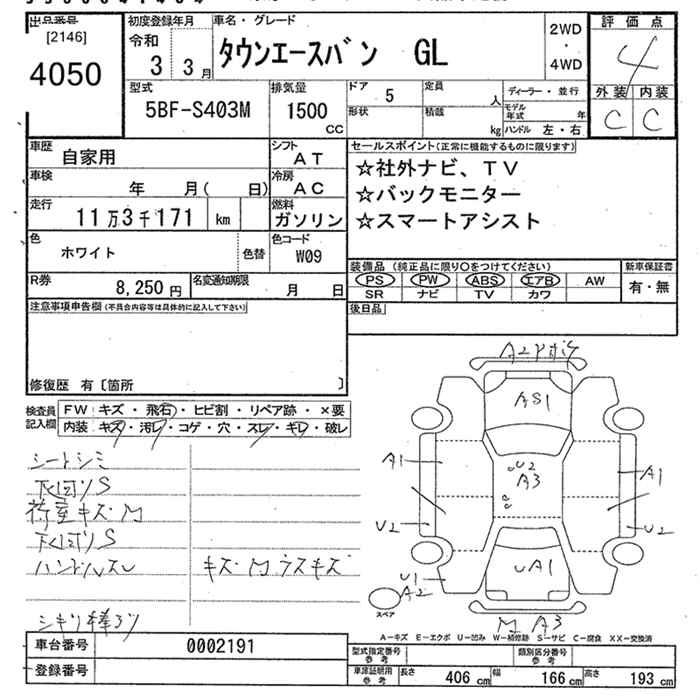 出品番号
[2146]
4050
初度登録年月
令和
3 3月
車名・グレード
タウンエースバン GL
2WD
・
4WD
評価点
4
外装 内装
C C
型式
5BF-S403M
排気量
1500
CC
ドア 5
形状
定員 人
積載 kg
ディーラー・並行
モデル年式 年
ハンドル 左・右
車歴
自家用
シフト
AT
車検
年 月( 日)
冷房
AC
走行
11万3千171 km
燃料
ガソリン
色
ホワイト
色替
色コード
W09
R券
8,250円
名変通知期限
月 日
セールスポイント(正常に機能するものに限ります)
☆社外ナビ、TV
☆バックモニター
☆スマートアシスト
装備品 (純正品に限り〇をつけてください)
PS PW ABS エアB AW
SR ナビ TV カワ
新車保証書
有・無
後日品
注意事項申告欄(不具合内容等は具体的に記入して下さい)
修復歴 有〔箇所 〕
検査員
記入欄
FW キズ・飛石・ヒビ割・リペア跡・×要
内装 キズ・汚レ・コゲ・穴・スレ・キレ・破レ
シートシミ
下回りS
荷室キズM
下回りS
ハンドルスレ
キズM ウスキズ
A2
AS1
U2
A3
A1
U2
A1
U2
UA1
U1
A2
M A3
スペア
A-キズ E-エクボ U-凹み W-補修跡 S-サビ C-腐食 XX-交換済
車台番号
0002191
登録番号
型式指定番号
参考
類別区分番号
参考
車庫証明用
参考
長さ 406cm
幅 166cm
高さ 193cm